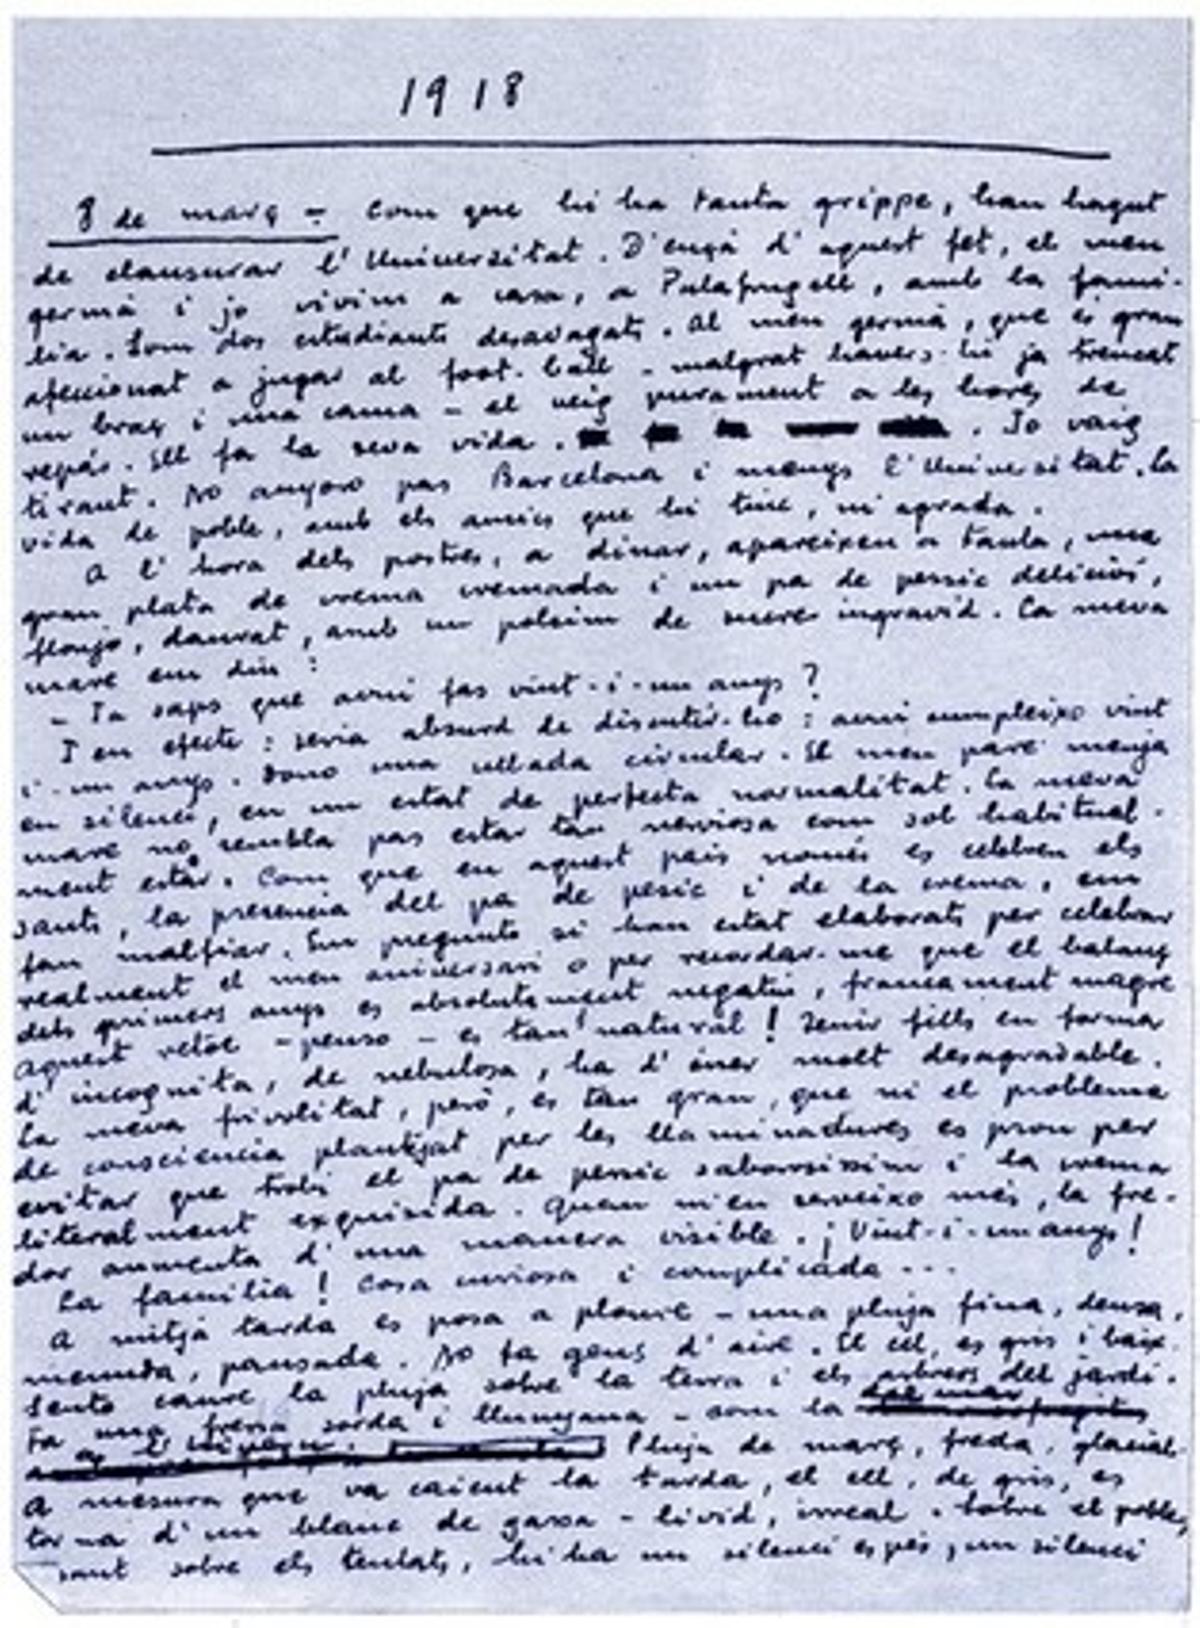 1918
8 de març - Com que hi ha tanta grippe, han hagut
de clausurar l'Universitat. D'ençà d'aquest fet, el meu
germà i jo vivim a casa, a Palafrugell, amb la famí-
lia. Som dos estudiants desvagats. Al meu germà, que és gran
afeccionat a jugar al foot-ball - malgrat havers-hi ja trencat
un braç i una cama - el veig purament a les hores de
repàs. Ell fa la seva vida. Jo vaig
tirant. No anyoro pas Barcelona i menys l'Universitat. La
vida de poble, amb els amics que hi tinc, m'agrada.
A l'hora dels postres, a dinar, apareixen a taula, una
gran plata de crema cremada i un pa de pessic deliciós,
flonjo, daurat, amb un polsim de sucre ingravid. La meva
mare em diu:
- Ja saps que avui fas vint-i-un anys?
I en efecte: seria absurd de discutir-ho: avui cumpleixo vint
i-un anys. Dono una ullada circular. El meu pare menja
en silenci, en un estat de perfecta normalitat. La meva
mare no sembla pas estar tan nerviosa com sol habitual-
ment estar. Com que en aquest país només es celebren els
sants, la presència del pa de pesic i de la crema, em
fan malfiar. Em pregunto si han estat elaborats per celebrar
realment el meu aniversari o per recordar-me que el balanç
dels primers anys es absolutament negatiu, francament magre
Aquest retoc - penso - es tan natural! Tenir fills en forma
d'incognita, de nebulosa, ha d'ésser molt desagradable.
La meva frivolitat, però, es tan gran, que ni el problema
de consciencia plantejat per les llaminadures es prou per
evitar que trobi el pa de pessic saborosissim i la crema
literalment exquisida. Quan m'en serveixo més, la fre-
dor aumenta d'una manera visible. ¡Vint-i-un anys!
La familia! Cosa curiosa i complicada...
A mitja tarda es posa a ploure - una pluja fina, densa,
menuda, pausada. No fa gens d'aire. El cel, es gris i baix.
Sento caure la pluja sobre la terra i els arbres del jardí.
Fa una fressa sorda i llunyana - com la del mar
a l'hivern. Pluja de març, freda, glacial.
A mesura que va caient la tarda, el cel, de gris, es
torna d'un blanc de gassa - livid, irreal. Sobre el poble,
sant sobre els teulats, hi ha un silenci espés, un silenci